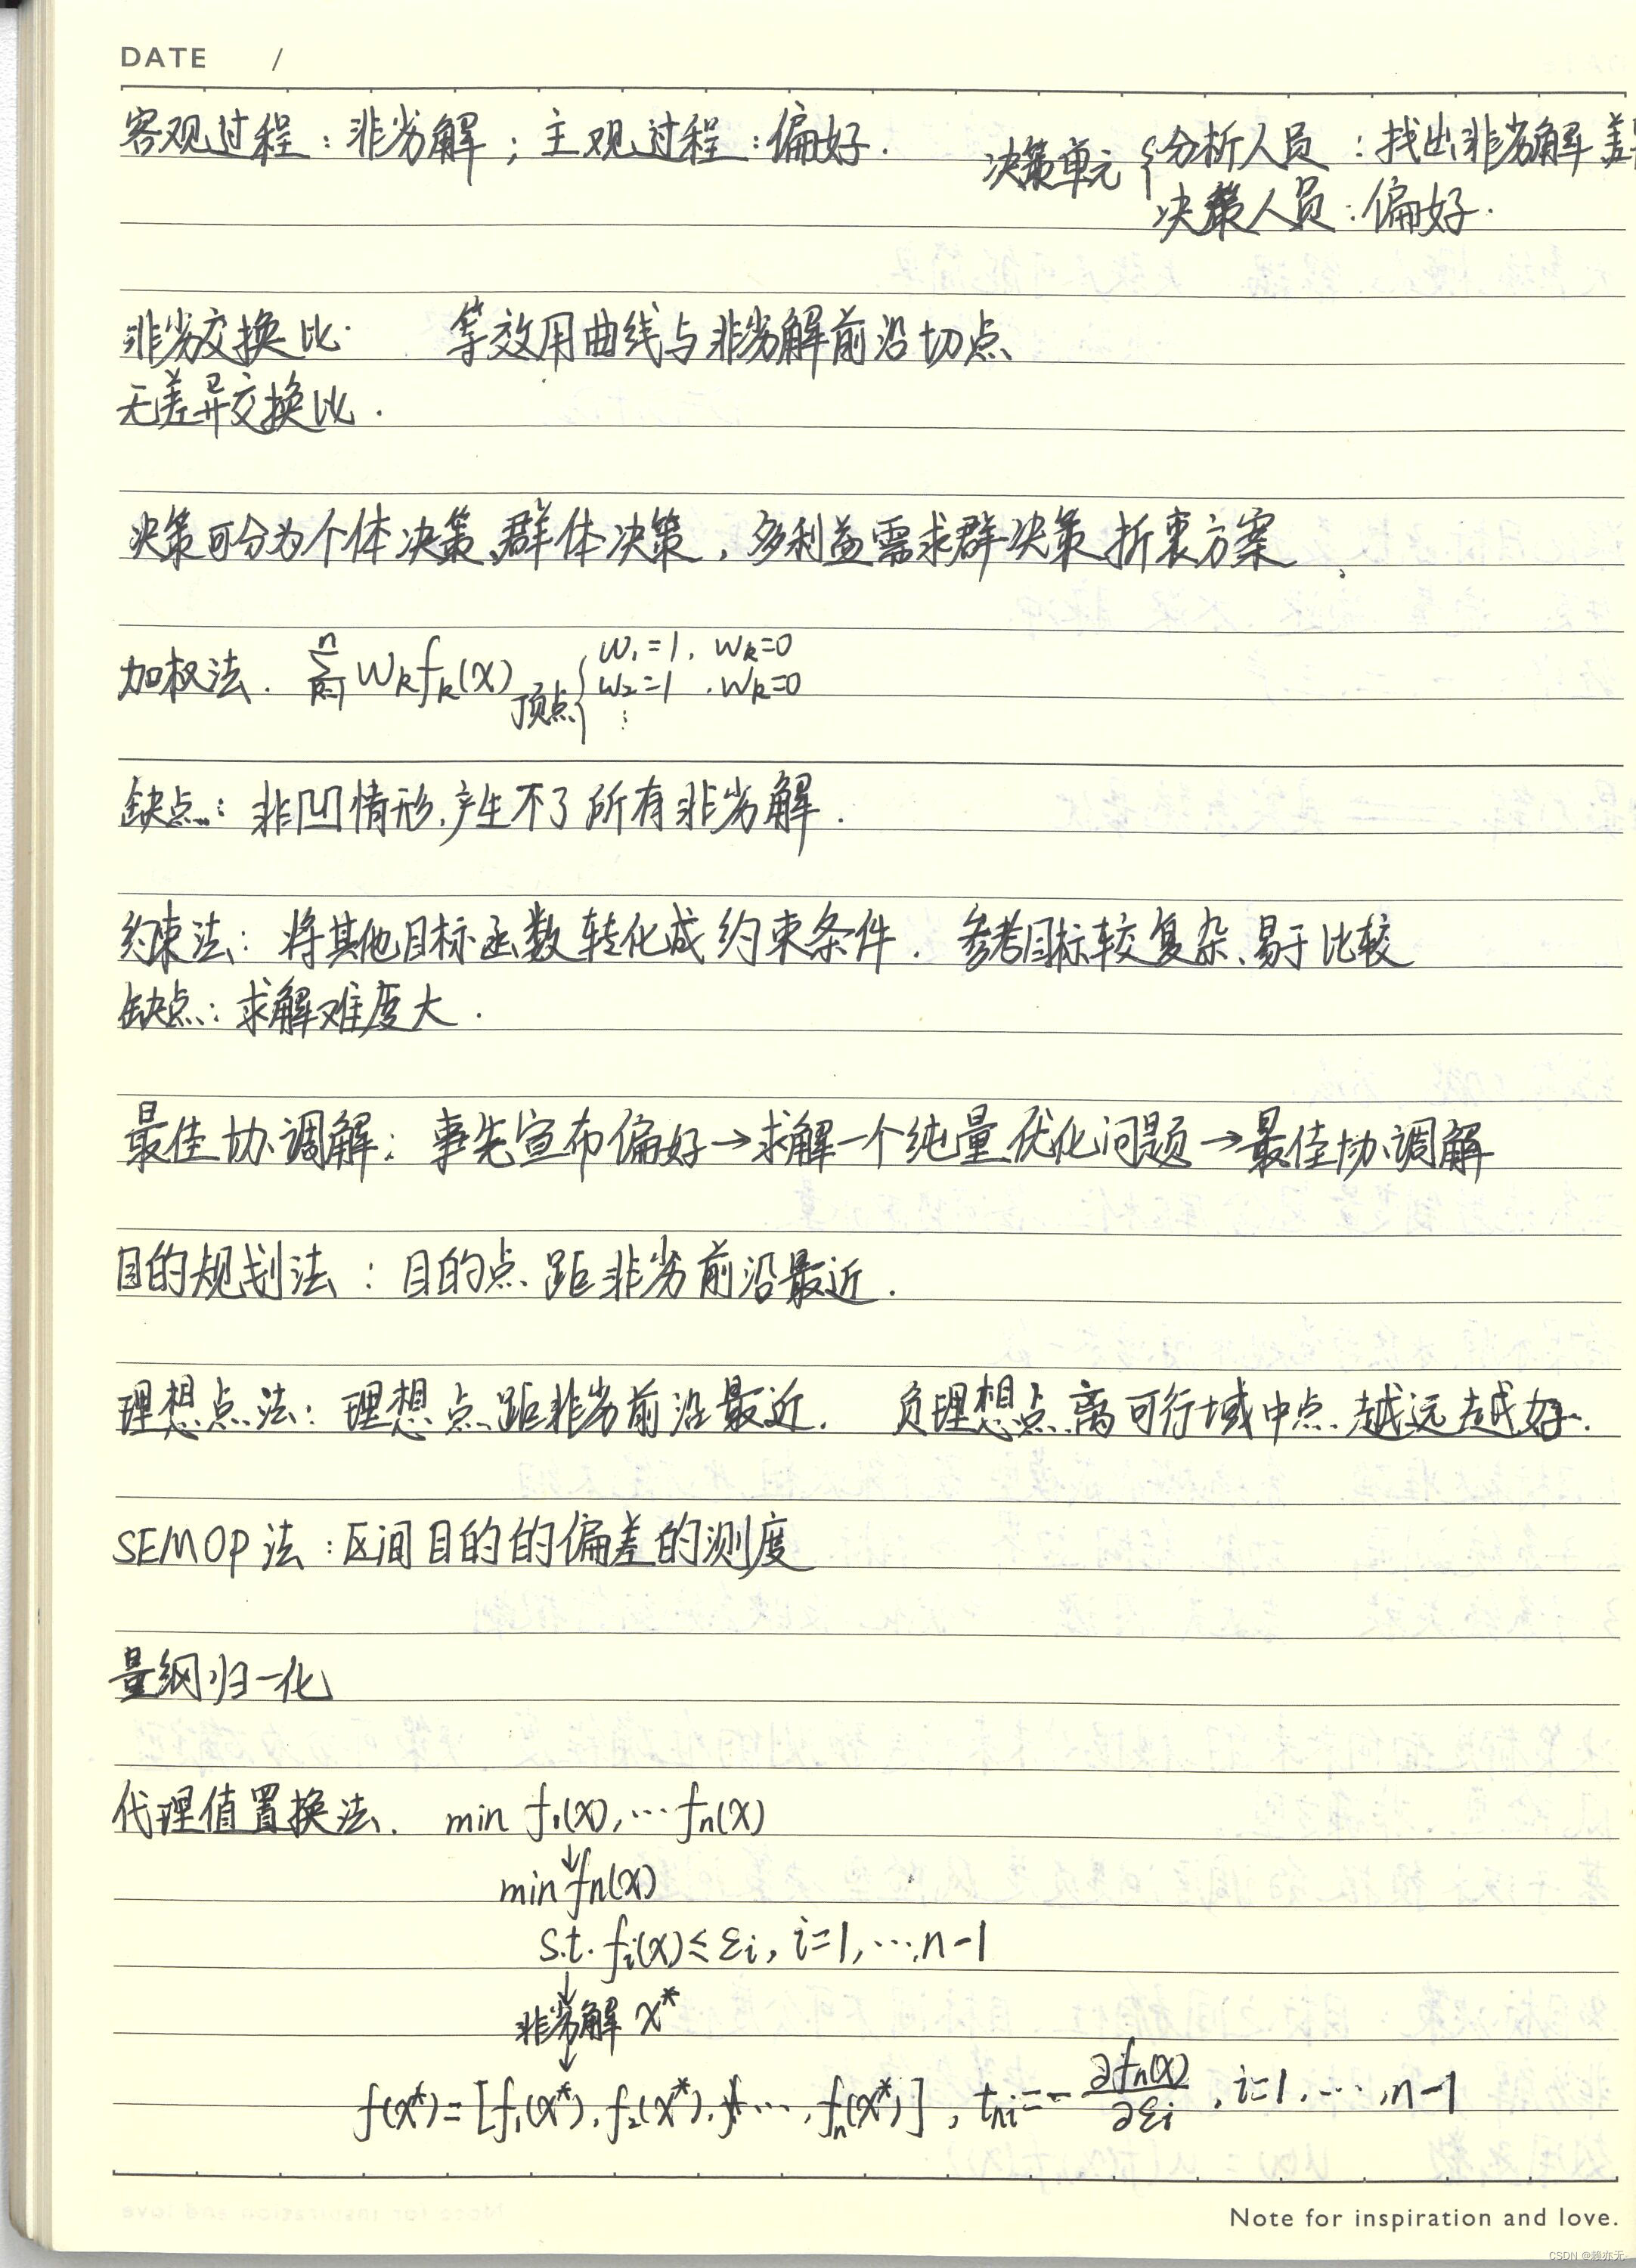 DATE /
客观过程：非劣解；主观过程：偏好. 决策单元{分析人员：找出非劣解
决策人员：偏好.
非劣交换比. 等效用曲线与非劣解前沿切点
无差异交换比.
决策可分为个体决策、群体决策，多利益需求群决策 折衷方案
加权法. $\sum_{k=1}^{n} w_k f_k(x)$ 顶点 { $w_1=1, w_k=0$
$w_2=1, w_k=0$
⋮
缺点：非凹情形,产生不了所有非劣解.
约束法：将其他目标函数转化成约束条件. 参考目标较复杂、易于比较
缺点：求解难度大.
最佳协调解：事先宣布偏好→求解一个纯量优化问题→最佳协调解
目的规划法：目的点距非劣前沿最近.
理想点法：理想点距非劣前沿最近. 负理想点离可行域中点越远越好.
SEMOP法：区间目的的偏差的测度
量纲归一化
代理值置换法. min f₁(x),…fₙ(x)
↓
min fₙ(x)
s.t. fᵢ(x)≤εᵢ, i=1,…,n-1
↓
非劣解 x*
↓
f(x*)=[f₁(x*), f₂(x*), …, fₙ(x*)], $t_{ni}=-\frac{\partial f_n(x)}{\partial \varepsilon_i}$, i=1,…,n-1
Note for inspiration and love.
CSDN @赖亦无